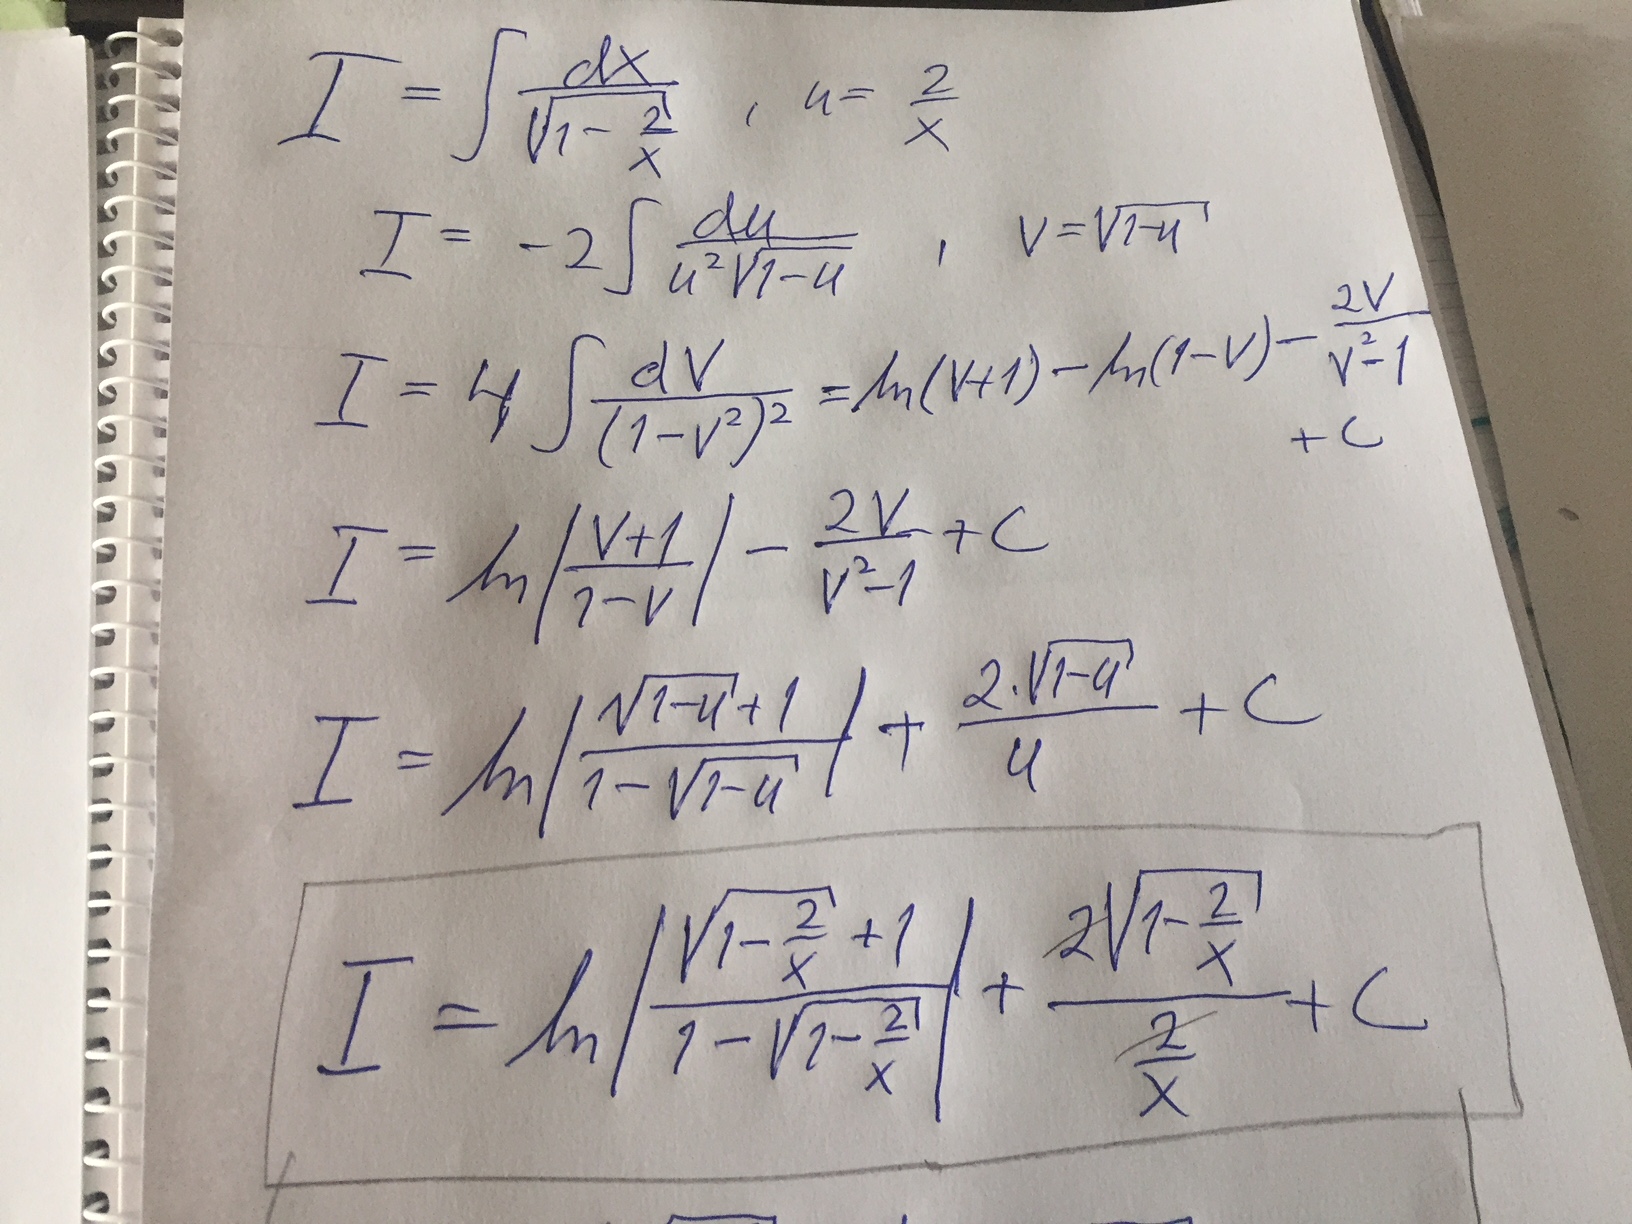 I = ∫ dx / √(1 - 2/x) , u = 2/x
I = -2 ∫ du / (u²√(1-u)) , v = √(1-u)
I = 4 ∫ dv / (1-v²)² = ln(v+1) - ln(1-v) - 2v / (v²-1)
+ C
I = ln | (v+1) / (1-v) | - 2v / (v²-1) + C
I = ln | (√(1-u) + 1) / (1 - √(1-u)) | + 2·√(1-u) / u + C
I = ln | (√(1 - 2/x) + 1) / (1 - √(1 - 2/x)) | + 2√(1 - 2/x) / (2/x) + C